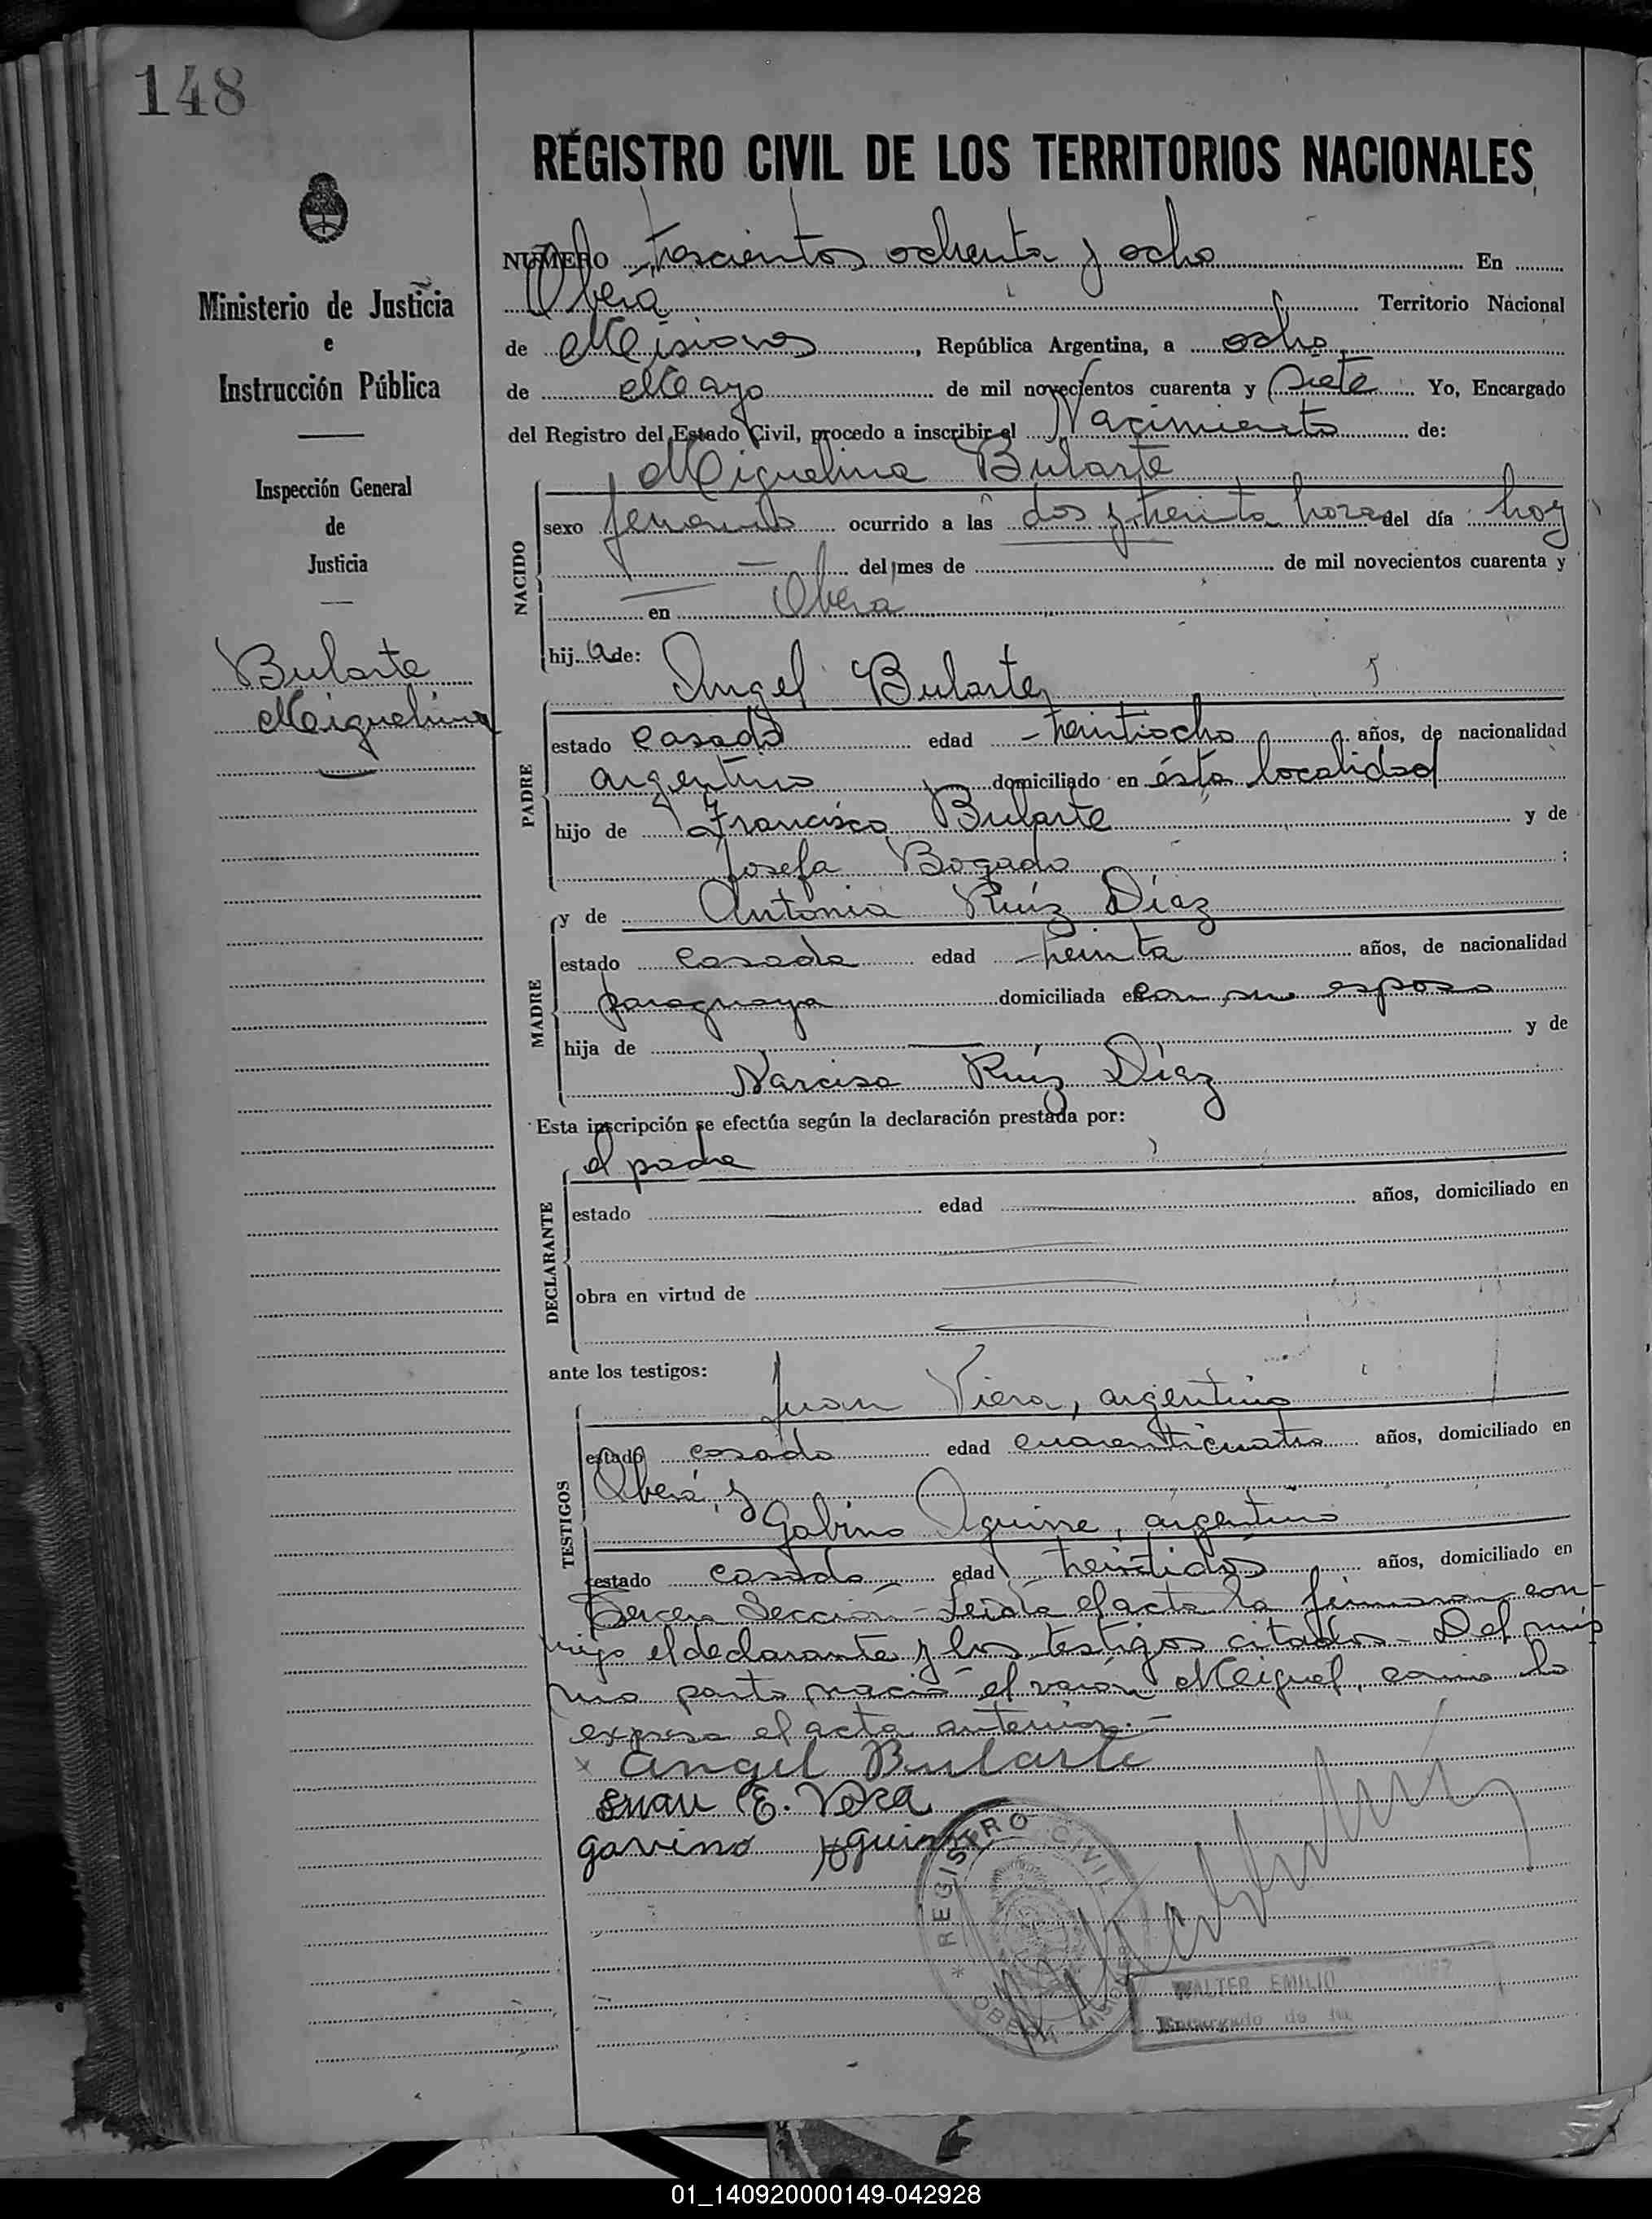 148
REGISTRO CIVIL DE LOS TERRITORIOS NACIONALES
NUMERO trescientos ochenta y ocho En
Oberá Territorio Nacional
de Misiones, República Argentina, a ocho
de Mayo de mil novecientos cuarenta y siete Yo, Encargado
del Registro del Estado Civil, procedo a inscribir el Nacimiento de:
Miguelina Bularte
NACIDO
sexo femenino ocurrido a las dos y treinta horas del día hoy
del mes de de mil novecientos cuarenta y
en Oberá
hija de:
Angel Bularte,
PADRE
estado casado edad treintiocho años, de nacionalidad
argentino domiciliado en ésta localidad
hijo de Francisco Bularte y de
Josefa Bogado ;
y de Antonia Ruíz Díaz
MADRE
estado casada edad treinta años, de nacionalidad
paraguaya domiciliada en con su esposo
hija de y de
Narcisa Ruíz Díaz
Esta inscripción se efectúa según la declaración prestada por:
el padre
DECLARANTE
estado edad años, domiciliado en
obra en virtud de
ante los testigos:
Juan Viera, argentino
TESTIGOS
estado casado edad cuarenticuatro años, domiciliado en
Oberá, y
Gabino Aguirre, argentino
estado casado edad treintidós años, domiciliado en
Tercera Sección - Leída el acta la firmaron con-
migo el declarante y los testigos citados - Del mis
mo parto nació el varón Miguel, como lo
expresa el acta anterior.-
x angel Bularte
Juan E. Vera
gavino Aguirre
REGISTRO CIVIL
* OBERÁ - MISIONES
WALTER EMILIO
Encargado de
Ministerio de Justicia
e
Instrucción Pública
Inspección General
de
Justicia
Bularte
Miguelina
01_140920000149-042928